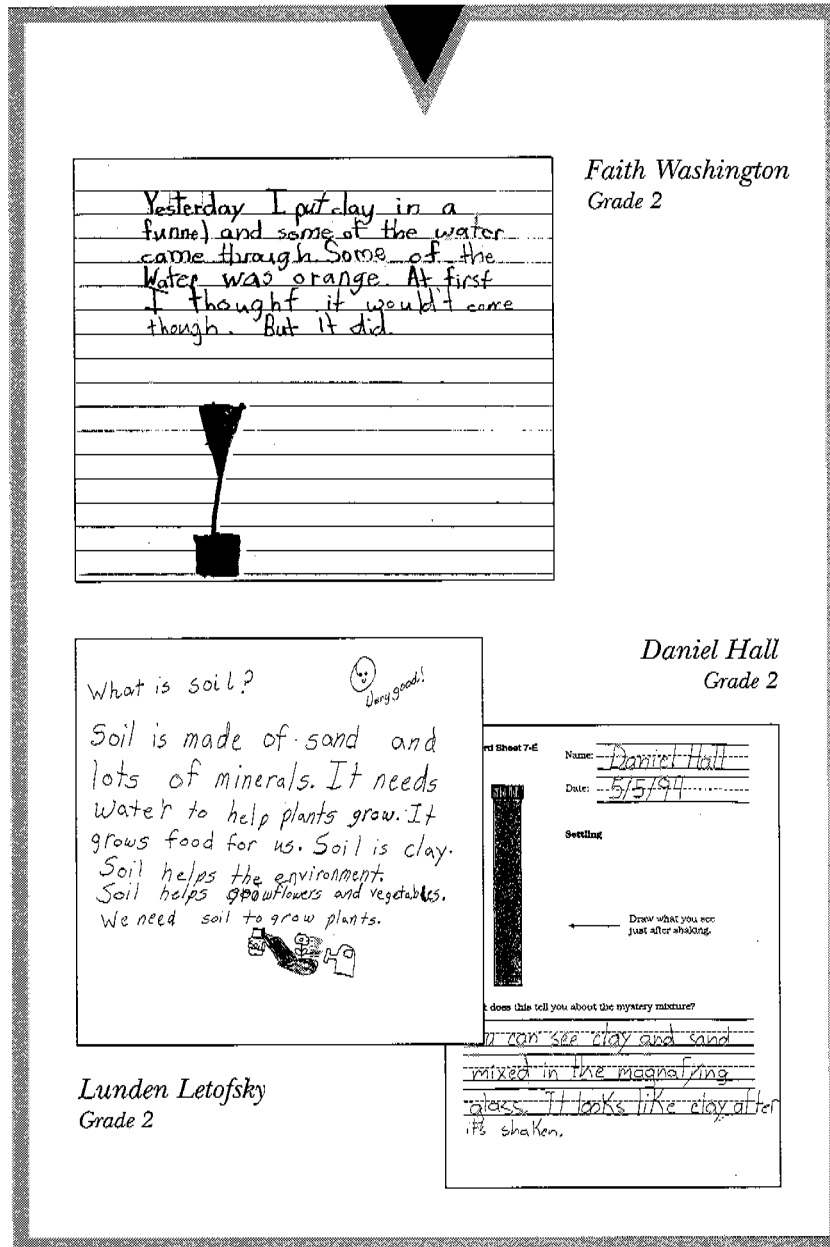 Faith Washington
Grade 2
Yesterday I put clay in a
funnel and some of the water
came through. Some of the
Water was orange. At first
I thought it would't come
though. But it did.
What is soil?
Very good!
Soil is made of sand and
lots of minerals. It needs
water to help plants grow. It
grows food for us. Soil is clay.
Soil helps the environment.
Soil helps grow flowers and vegetables.
We need soil to grow plants.
Lunden Letofsky
Grade 2
Daniel Hall
Grade 2
rd Sheet 7-E
Name: Daniel Hall
Date: 5/5/94
Settling
Draw what you see
just after shaking.
t does this tell you about the mystery mixture?
can see clay and sand
mixed in the magnafying
glass. It looks like clay after
it's shaken.